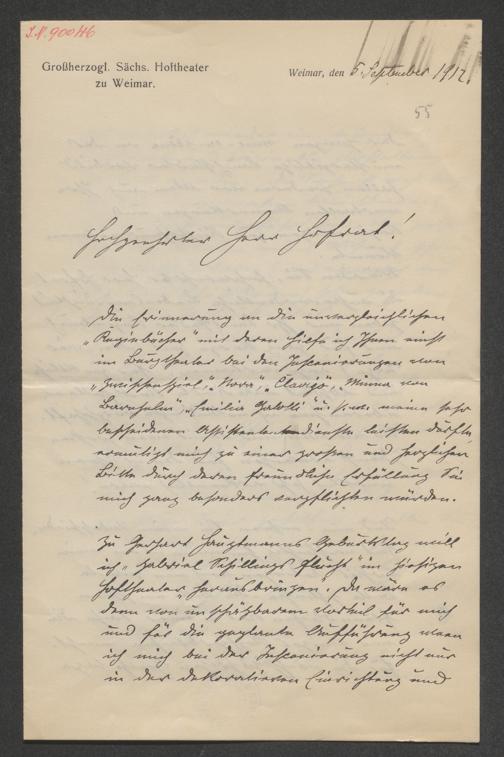 I.N. 90046
Großherzogl. Sächs. Hoftheater
zu Weimar.
Weimar, den 5. September 1912.
55
Hochgeehrter Herr Hofrat!
Die Erinnerung an die unvergleichlichen
„Regiebücher" mit deren Hilfe ich Ihnen einst
im Burgtheater bei den Inscenierungen von
„Zwischenspiel", „Nora", „Clavigo", „Minna von
Barnhelm", „Emilia Galotti" u. s. w. meine sehr
bescheidenen Assistentendienste leisten durfte
ermutigt mich zu einer großen und herzlichen
Bitte durch deren freundliche Erfüllung Sie
mich ganz besonders verpflichten würden.
Zu Gerhart Hauptmanns Geburtstag will
ich „Gabriel Schillings Flucht" im hiesigen
Hoftheater herausbringen. Da wäre es
denn von unschätzbarem Vorteil für mich
und für die geplante Aufführung wenn
ich mich bei der Inscenierung nicht nur
in der dekorativen Einrichtung und